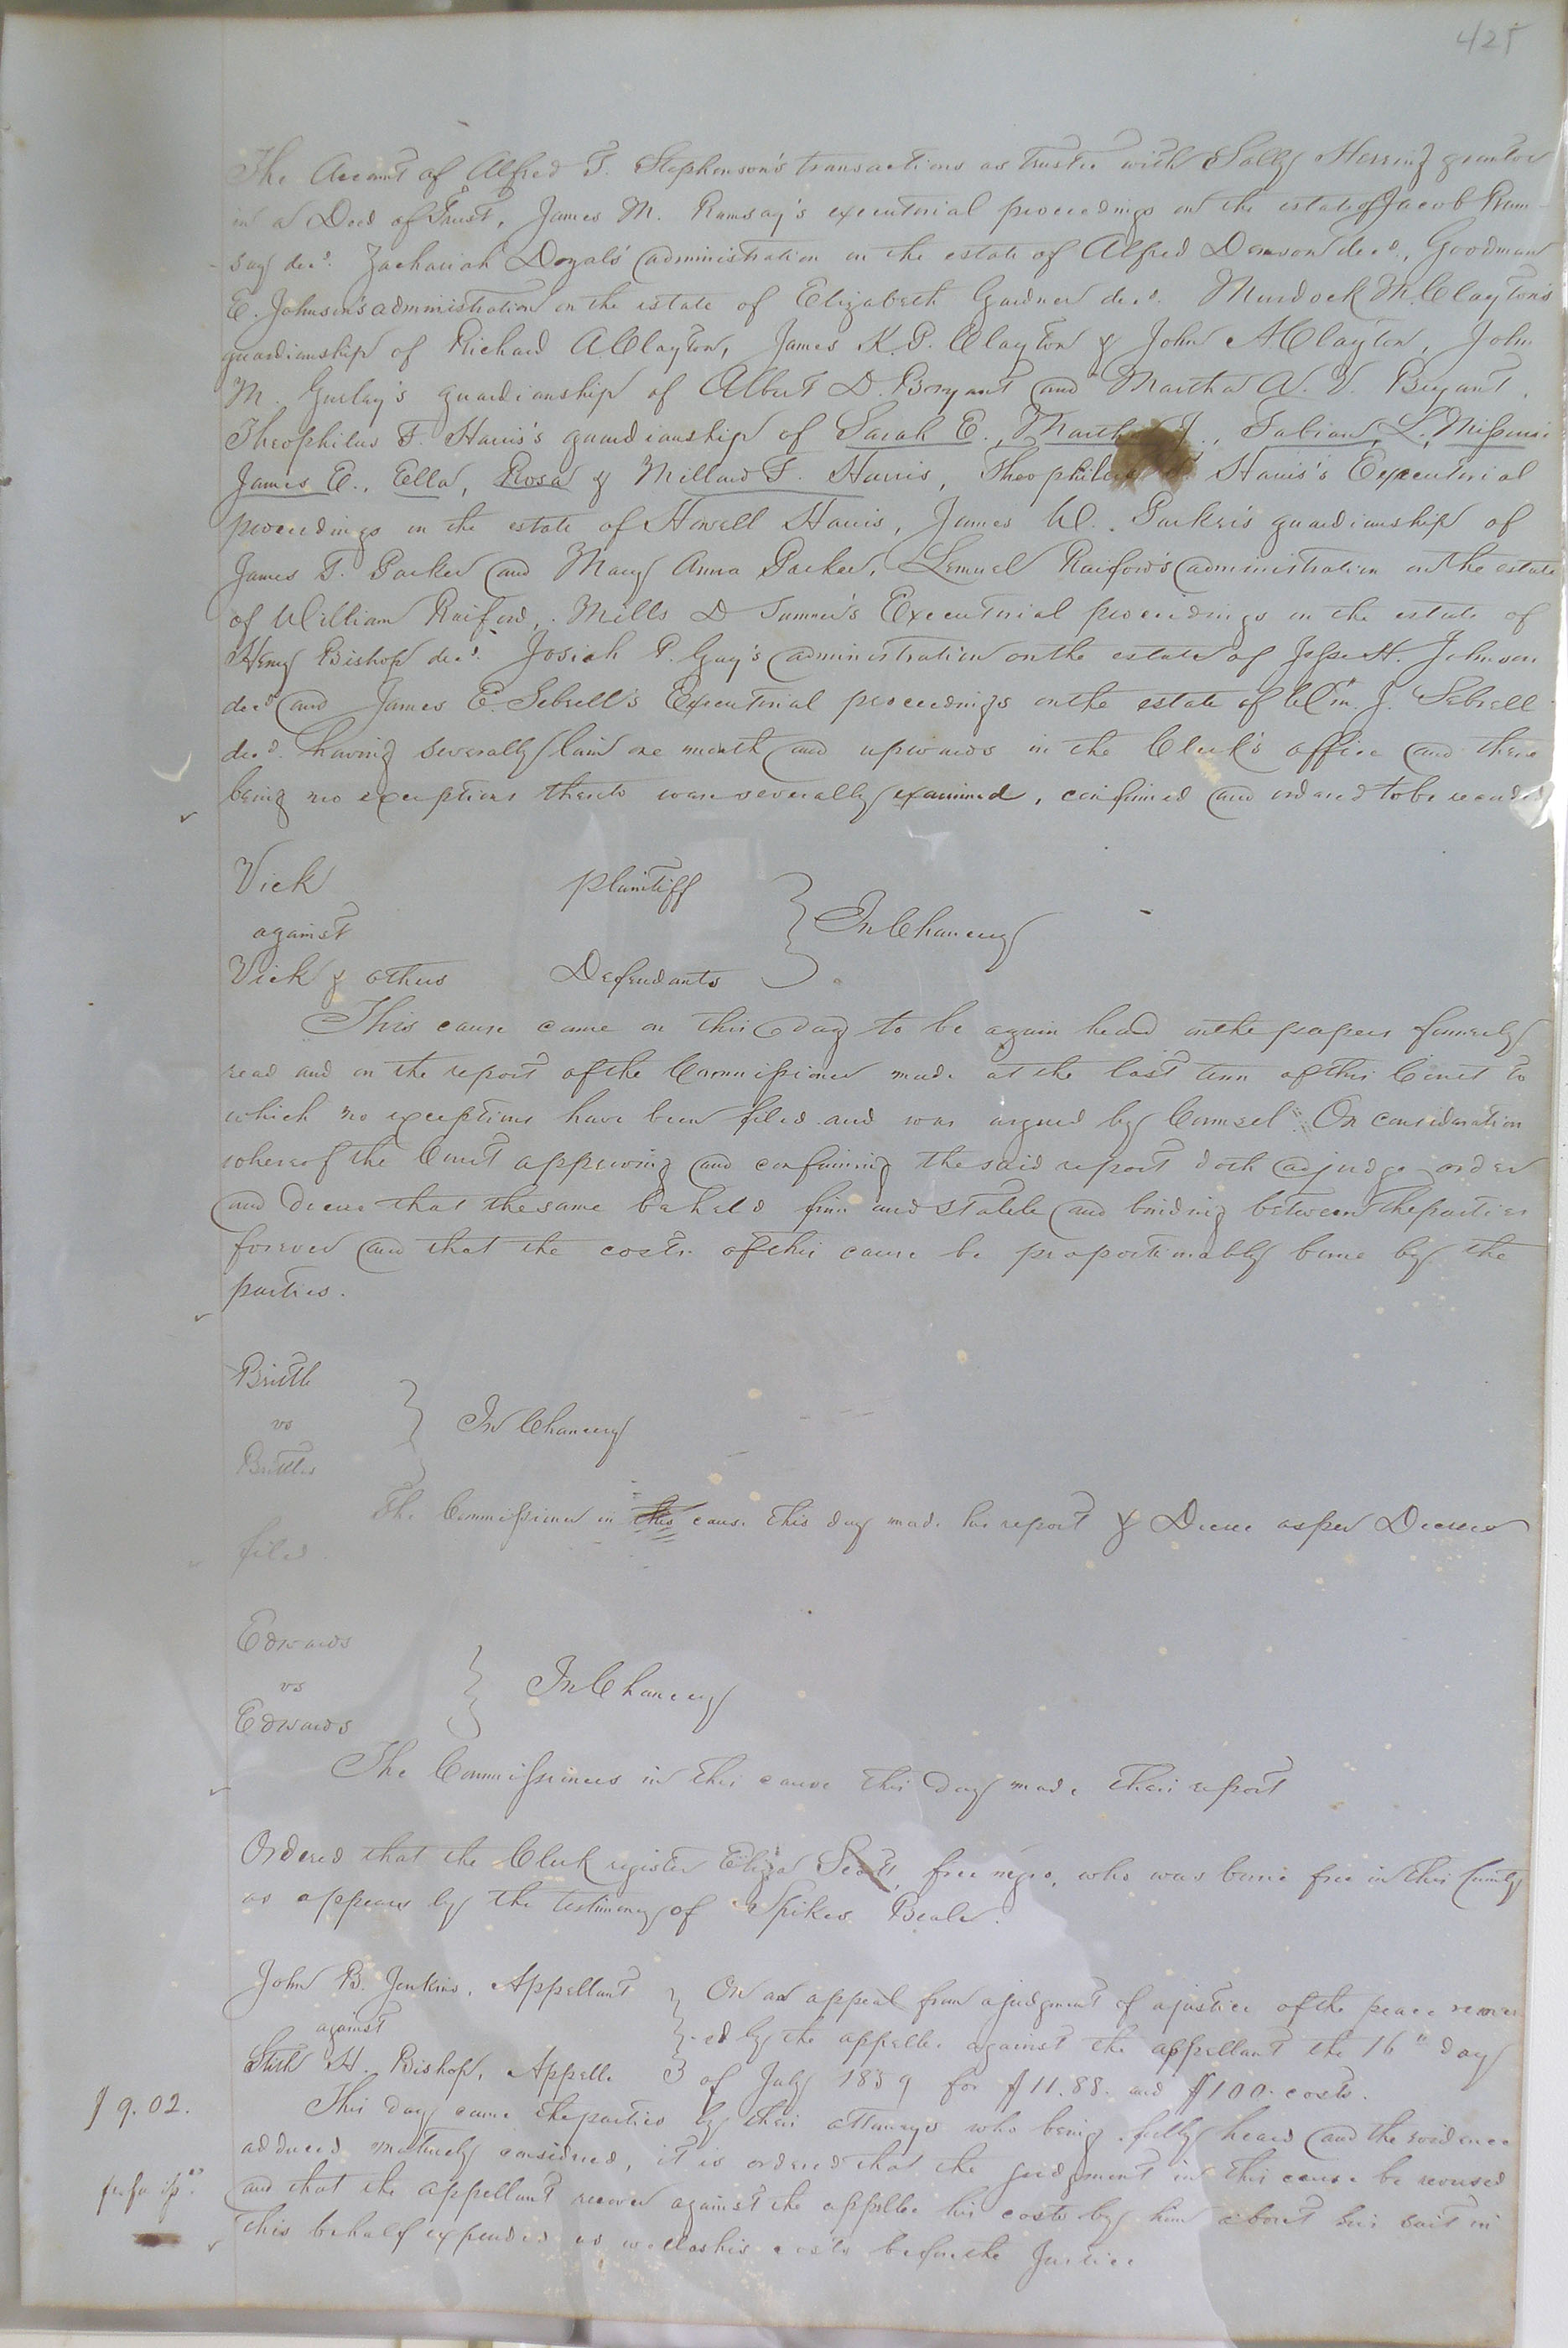 425
The Account of Alfred T. Stephenson's transactions as trustee with Sally Herring grantor
in a Deed of Trust, James M. Ramsay's executorial proceedings on the estate of Jacob Ram-
say decd. Zachariah Doyal's administration on the estate of Alfred Denson decd., Goodman
E. Johnson's administration on the estate of Elizabeth Gardner decd. Murdock M. Clayton's
guardianship of Richard A Clayton, James K. P. Clayton & John A Clayton, John
M. Gurlay's guardianship of Albert D. Bryant and Martha A. V. Bryant,
Theophilus F. Harris's guardianship of Sarah E., Martha J., Fabian L., Missouri
James E., Ella, Rosa & Millard F. Harris, Theophilus F. Harris's Executorial
proceedings on the estate of Howell Harris, James W. Parker's guardianship of
James T. Parker and Mary Anna Parker, Lemuel Raiford's administration on the estate
of William Raiford, Mills D Sumner's Executorial proceedings on the estate of
Henry Bishop decd. Josiah P. Gay's administration on the estate of Jesse H. Johnson
decd and James E. Sebrell's Executorial proceedings on the estate of Wm. J. Sebrell
decd. having severally lain one month and upwards in the Clerk's office and there
being no exceptions thereto were severally examined, confirmed and ordered to be recorded
Vick plaintiff
against } In Chancery
Vick & others Defendants
This cause came on this day to be again heard on the papers formerly
read and on the report of the Commissioner made at the last term of this Court to
which no exceptions have been filed and was argued by Counsel: On consideration
whereof the Court approving and confirming the said report doth adjudge order
and decree that the same be held firm and stable and binding between the parties
forever and that the costs of this cause be proportionably borne by the
parties.
Brittle
vs } In Chancery
Brittles
The Commissioner in this cause this day made his report & Decree as per Decree
filed
Edwards
vs } In Chancery
Edwards
The Commissioners in this cause this day made their report
Ordered that the Clerk register Eliza Scott, free negro, who was borne free in this County
as appears by the testimony of Spikes Beale.
John B. Jenkins, Appellant } On an appeal from a judgment of a justice of the peace recover
against } -ed by the appellee against the appellant the 16" day
Stith H. Bishop, Appelle } of July 1859 for $11.88. and $1.00. costs.
$9.02. This day came the parties by their attorneys who being fully heard and the evidence
adduced maturely considered, it is ordered that the judgment in this cause be reversed
and that the appellant recover against the appellee his costs by him about his suit in
this behalf expended as well as his costs before the Justice